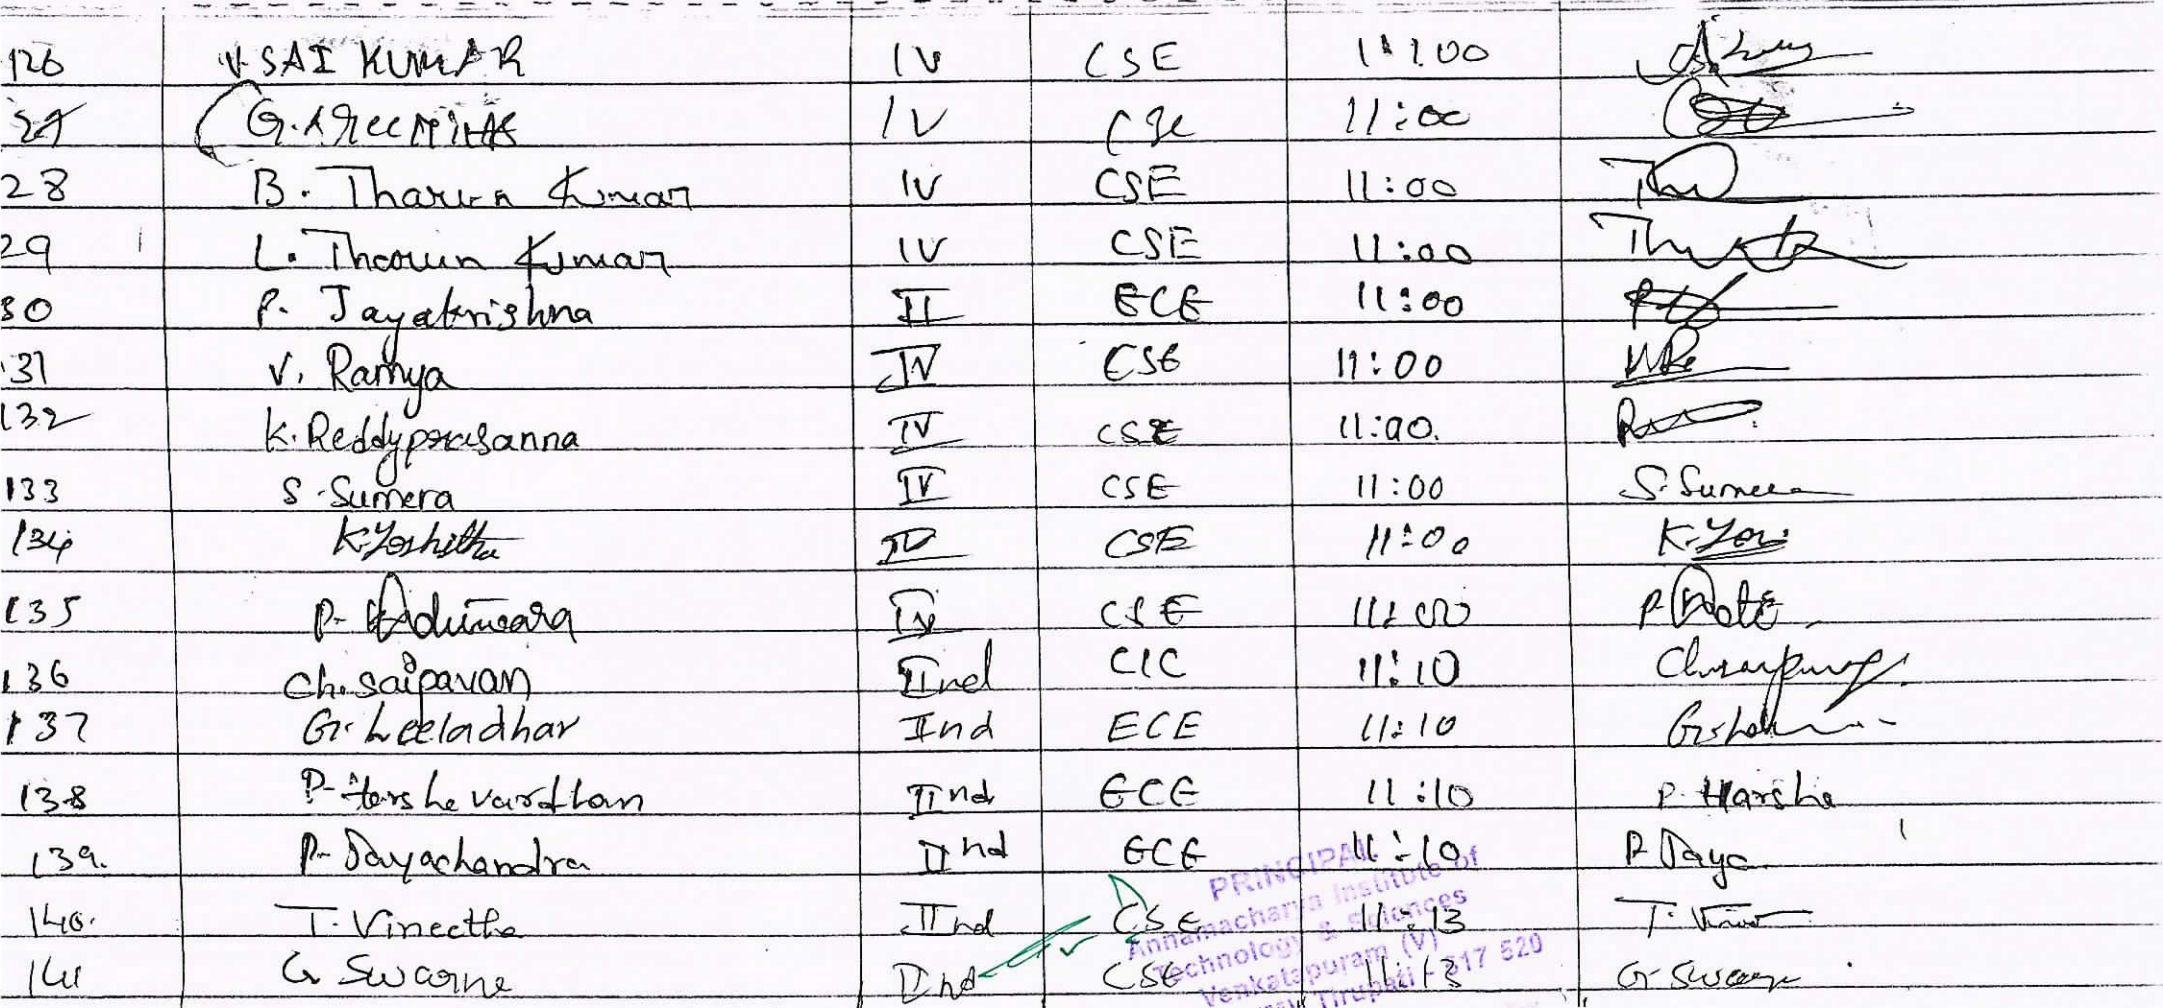 126 V. SAI KUMAR IV CSE 11:00
27 G. Sreenivas IV CSE 11:00
28 B. Tharun Kumar IV CSE 11:00
29 L. Tharun Kumar IV CSE 11:00
30 P. Jayakrishna II ECE 11:00
31 V. Ramya IV CSE 11:00
132 K. Reddyprasanna IV CSE 11:00.
133 S. Sumera IV CSE 11:00 S. Sumera
134 K. Yoshitha IV CSE 11:00 K. Yos
135 P. IV CSE 11:00 P.
136 Ch. saipavan IInd CIC 11:10
137 G. Leeladhar IInd ECE 11:10
138 P. Harshevardhan IInd ECE 11:10 P. Harsha
139. P. Dayachandra IInd ECE 11:10 P. Daya
140. T. Vineetha IInd CSE 11:13
141 G Swarna IInd CSE 11:13
PRINCIPAL
Annamacharya Institute of
Technology & Sciences
Venkatapuram (V)
Tirupati - 517 520